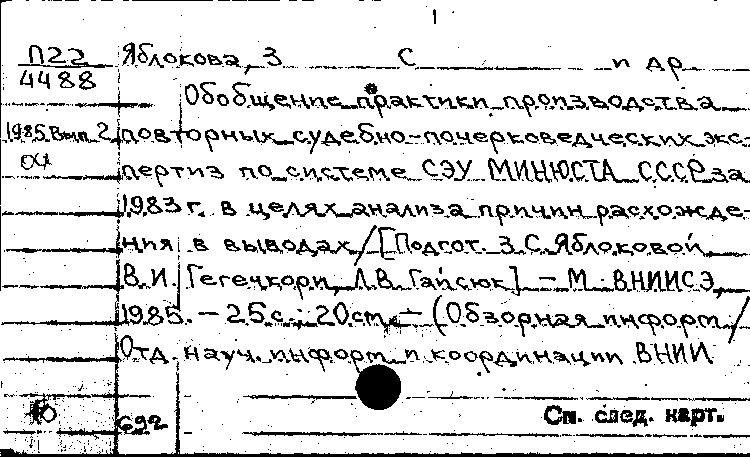 1
П22 Яблокова, З С и др
4488
Обобщение практики производства
1985 Вып 2 повторных судебно-почерковедческих экс-
пертиз по системе СЭУ МИНЮСТА СССР за
1983 г. в целях анализа причин расхожде-
ния в выводах / [Подгот. З.С. Яблоковой,
В.И. Гегечкори, Л.В. Гайсюк] – М : ВНИИСЭ,
1985. – 25 с.; 20 cm. – (Обзорная информ. /
Отд. науч. информ и координации ВНИИ
692
См. след. карт.